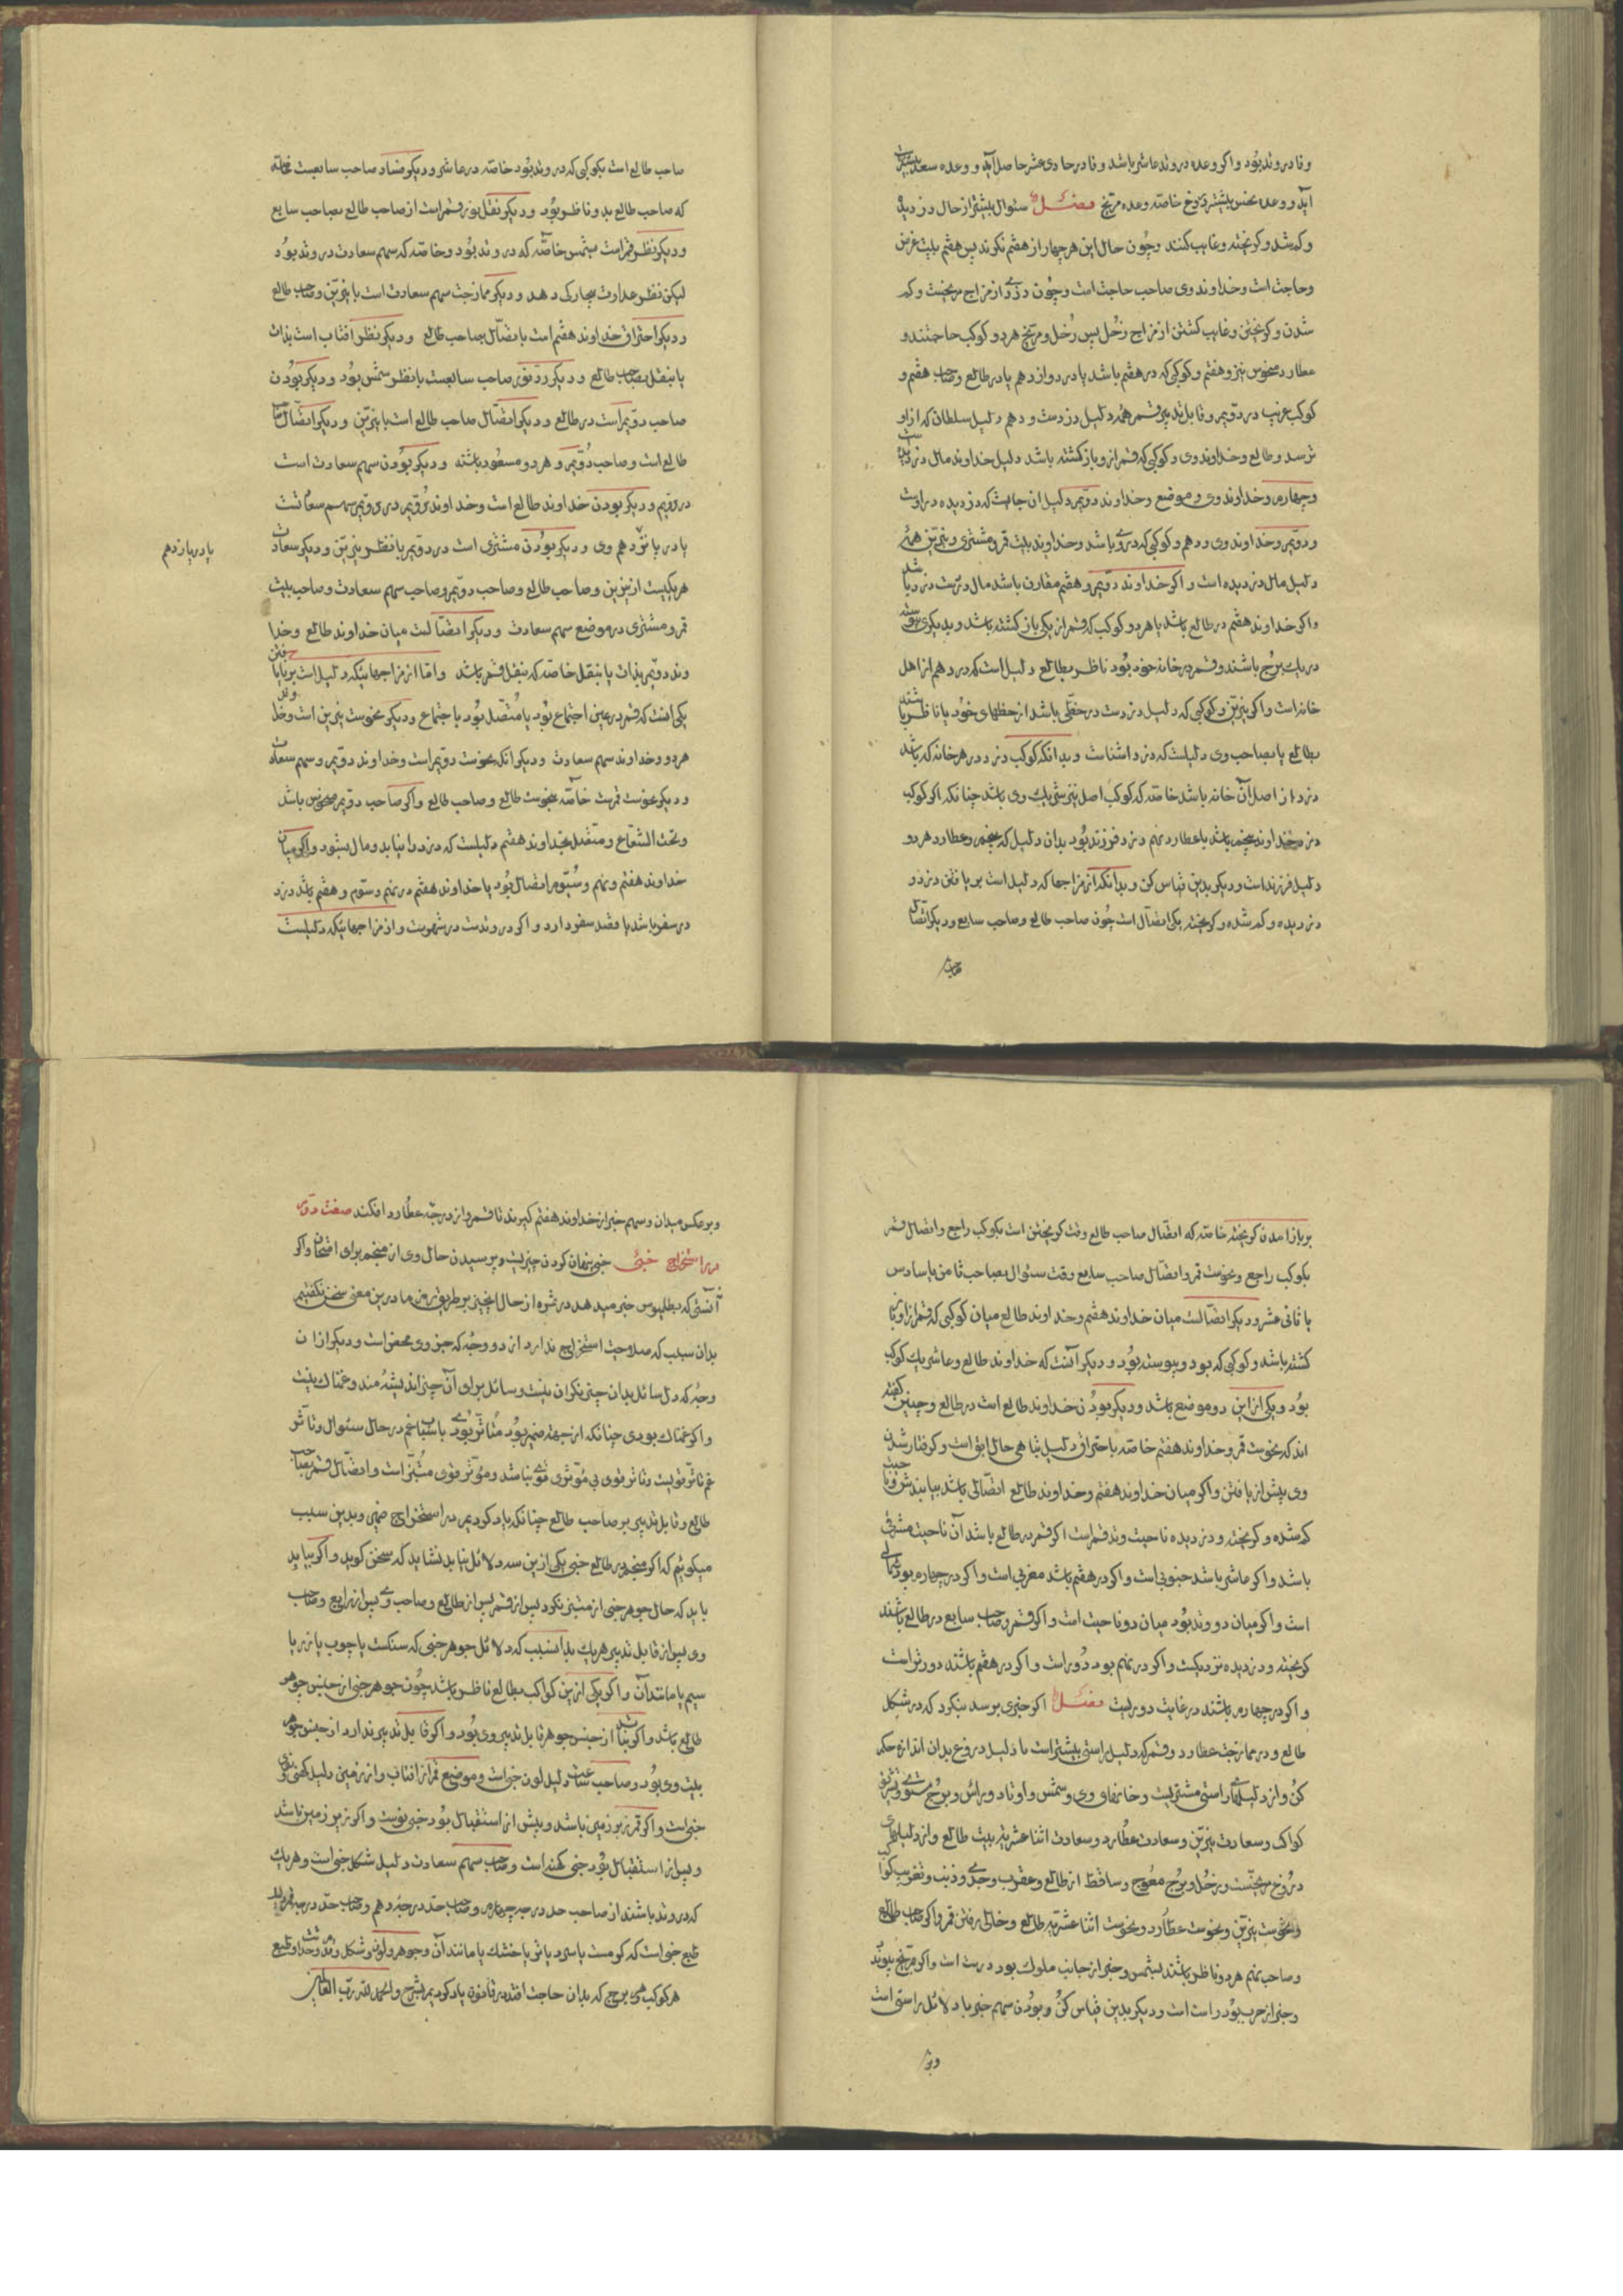 وفا در وتد بود و اگر وعده در وتد عاشر باشد وفا در حادی عشر حاصل آید و وعده سعد بیشتر راست
آید و وعده نحس بیشتر دروغ خاصه وعده مریخ فصل سئوال بیشتر از حال دزدیده
و گم شد و گریخته و غایب کنند و چون حال این هر چهار از هفتم نگرند پس هفتم بیت غرض
و حاجت است و خداوند وی صاحب حاجت است و چون دزدی از مزاج مریخست و گم
شدن و گریختن و غایب گشتن از مزاج زحل پس زحل و مریخ هر دو کوکب حاجتند و
عطارد منحوس نیز و هفتم و کوکبی که در هفتم باشد یا در دوازدهم یا در طالع و صاحب هفتم و
کوکب غریب در دویم و قابل تدبیر قمر همه دلیل دزدست و دهم دلیل سلطان که ازاو
ترسد و طالع و خداوند وی و کوکبی که قمر ازو باز گشته باشد دلیل خداوند مال دزدیده است
و چهارم و خداوند وی و موضع و خداوند دویم دلیل ان جایست که دزدیده دراوست
و دویم و خداوند وی و دهم و کوکبی که دروی باشد و خداوند بیت قمر و مشتری و نیرین همه
دلیل مال دزدیده است و اگر خداوند دویم و هفتم مقارن باشد مال در دست دزد باشد
و اگر خداوند هفتم در طالع باشد یا هر دو کوکب که قمر از یکی باز گشته باشد و بدیگری پیوسته
در یک برج باشند و قمر در خانه خود بود ناظر بطالع دلیل است که دزد هم از اهل
خانه است و اگر نیرین و کوکبی که دلیل دزدست در حظی باشد از حظهای خود یا ناظر باشند
بطالع یا بصاحب وی دلیلست که دزد اشناست و بدانکه کوکب دزد در هر خانه که باشد
دزد از اصل آن خانه باشد خاصه که کوکب اصل نیز شریک وی باشد چنانکه اگر کوکب
دزد خداوند پنجم باشد یا عطارد نهم دزد فرزند بود بدان دلیل که پنجم و عطارد هر دو
دلیل فرزند است و دیگر بدین قیاس کن و بدانکه از مزاجها که دلیل است بر یافتن دزد و
دزدیده و گم شده و گریخته یکی اتصال است چون صاحب طالع و صاحب سابع و دیگر اتصال
صاحب
صاحب طالع است بکوکبی که در وتد بود خاصه در عاشر و دیگر فساد صاحب سابعست خاصه
که صاحب طالع بدو ناظر بود و دیگر نقل نور قمر است از صاحب طالع بصاحب سابع
و دیگر نظر قمر است بشمس خاصه که در وتد بود و خاصه که سهم سعادت در وتد بود
لیکن نظر عداوت بیچارگی دهد و دیگر ممازجت سهم سعادت است با نیرین و صاحب طالع
و دیگر احتراق خداوند هفتم است یا اتصال بصاحب طالع و دیگر نظر افتاب است بذات
یا بنقل بصاحب طالع و دیگر رد نور صاحب سابعست یا نظر شمس بود و دیگر بودن
صاحب دویم است در طالع و دیگر اتصال صاحب طالع است با نیرین و دیگر اتصال صاحب
طالع است و صاحب دویم و هر دو مسعود باشند و دیگر بودن سهم سعادت است
در دویم و دیگر بودن خداوند طالع است و خداوند دویم در دویم سهم سعادت
یا در پانزدهم وی و دیگر بودن مشتری است در دویم یا نظر نیرین و دیگر سعادت
یا در یازدهم
هر یکیست از نیرین و صاحب طالع و صاحب دویم و صاحب سهم سعادت و صاحب بیت
قمر و مشتری در موضع سهم سعادت و دیگر اتصالست میان خداوند طالع و خدا
وند دویم بذات یا بنقل خاصه که بنقل قمر باشد و اما از مزاجهائیکه دلیل است بر نایافتن
یکی انست که قمر در عین اجتماع بود یا متصل بود باجتماع و دیگر نحوست نیرین است و خداوند
هر دو و خداوند سهم سعادت و دیگر انکه نحوست دویم است و خداوند دویم و سهم سعادت
و دیگر نحوست قمرست خاصه بنحوست طالع و صاحب طالع و اگر صاحب دویم منحوس باشد
و تحت الشعاع و متصل بخداوند هفتم دلیلست که دزد را نیابد و مال بشود و اگر میان
خداوند هفتم و نهم و سیوم اتصال بود یا خداوند هفتم در نهم و سوم و هفتم باشد دزد
در سفر باشد یا قصد سفر دارد و اگر در وتدست در شهرست و از مزاجهائیکه دلیلست
بر باز امدن گریخته خاصه که اتصال صاحب طالع وقت گریختن است بکوکب راجع و اتصال قمر
بکوکب راجع و نحوست قمر و اتصال صاحب سابع وقت سئوال بصاحب ثامن یا سادس
یا ثانی عشر و دیگر اتصالست میان خداوند هفتم و خداوند طالع میان کوکبی که قمر ازو باز
گشته باشد و کوکبی که بود و پیوسته بود و دیگر آنست که خداوند طالع و عاشر یک کوکب
بود و یکی از این دو موضع باشد و دیگر بودن خداوند طالع است در طالع و چنین گفته
اند که نحوست قمر و خداوند هفتم خاصه باحتراق دلیل تباهی حال ابق است و گرفتار شدن
وی پیش از یافتن و اگر میان خداوند هفتم و خداوند طالع اتصالی باشد بیابندش و ناحیت
گم شده و گریخته و دزدیده ناحیت وتد قمر است اگر قمر در طالع باشد آن ناحیت مشرقی
باشد و اگر عاشر باشد جنوبی است و اگر در هفتم باشد مغربی است و اگر در چهارم بود شمالی
است و اگر میان دو وتد بود میان دو ناحیت است و اگر قمر و صاحب سابع در طالع باشند
گریخته و دزدیده نزدیکست و اگر در نهم بود دور است و اگر در هفتم باشند دورتر است
و اگر در چهارم باشند در غایت دوریست فصل اگر خبری برسد بنگرد که در شکل
طالع و در ممازجت عطارد و قمر که دلیل راستی بیشتر است یا دلیل دروغ بدان اندازه حکم
کن و از دلیلهای راستی مشتریست و خانهای وی و شمس و اوتاد و راس و برج مستوی و تشریق
کواکب و سعادت نیرین و سعادت عطارد و سعادت اثنا عشریه بیت طالع و از دلیلهای
دروغ مریخست و زحل و برج معوج و ساقط از طالع و عقرب و جدی و ذنب و تغریب کواکب
و نحوست نیرین و نحوست عطارد و نحوست اثنا عشریه طالع و خالی رفتن قمر و اگر صاحب طالع
و صاحب نهم هر دو ناظر باشند بشمس و خبر از جانب ملوک بود درست است و اگر مریخ پیوند
و خبر از حرب بود راست است و دیگر بدین قیاس کن و بودن سهم خبر با دلائل راستی است
وبر
و بر عکس میدان و سهم خبر از خداوند هفتم گیرند تا قمر و از درجه عطارد افکند صفت دویم
در استخراج خبی خبی پنهان کردن چیزیست و پرسیدن حال وی از منجم برای امتحان و اگر
آنستی که بطلمیوس خبر میدهد در ثمره از حال اینچیز بر طریق رمز ما درین معنی سخن نگفتیم
بدان سبب که صلاحیت استخراج ندارد از دو وجه که جزوی محض است و دیگر از ان
وجه که دل سائل بدان چیز نگران نیست و سائل برای آن چیز اندیشه مند و غمناک نیست
و اگر غمناک بودی چنانکه از جهت ضمیر بود متاثر بودی باسباب غم در حال سئوال و تاثر
غم تاثر قویست و تاثر قوی بی موثری قوی نباشد و موثر قوی مبتز است و اتصال قمر بصاحب
طالع و قابل تدبیر بر صاحب طالع چنانکه یاد کردیم در استخراج ضمیر و بدین سبب
میگوئیم که اگر منجم در طالع خبی یکی ازین سه دلائل نیابد نشاید که سخن گوید و اگر بیابد
باید که حال جوهر خبی از مبتز نگرد پس از قمر پس از طالع و صاحب وی پس از رابع و صاحب
وی پس از قابل تدبیر هر یک بدانسبب که دلائل جوهر خبی که سنگست یا چوب یا زر یا
سیم یا مانند آن و اگر یکی ازین کواکب بطالع ناظر باشد چون جوهر خبی از جنس جوهر
طالع باشد و اگر نباشد از جنس جوهر قابل تدبیر وی بود و اگر قابل تدبیر ندارد از جنس جوهر
بیت وی بود و صاحب ساعت دلیل لون خبی است و موضع قمر از افتاب و از زمین دلیل کهنی و نوی
خبی است و اگر قمر زبر زمین باشد و پیش از استقبال بود خبی نوست و اگر زیر زمین باشد
و پس از استقبال بود خبی کهنه است و صاحب سهم سعادت دلیل شکل خبی است و هر یک
که در وتد باشند از صاحب حد درجه چهارم و صاحب حد درجه دهم و صاحب حد درجه قمر دلیل
طبع خبی است که گرمست یا سرد یا تر یا خشک یا مانند آن و جوهر و لون و شکل و مونث و حد و طبع
هر کوکب و هر برج که بدان حاجت افتد در قانون یاد کردیم بشرح و الحمد لله رب العالمین